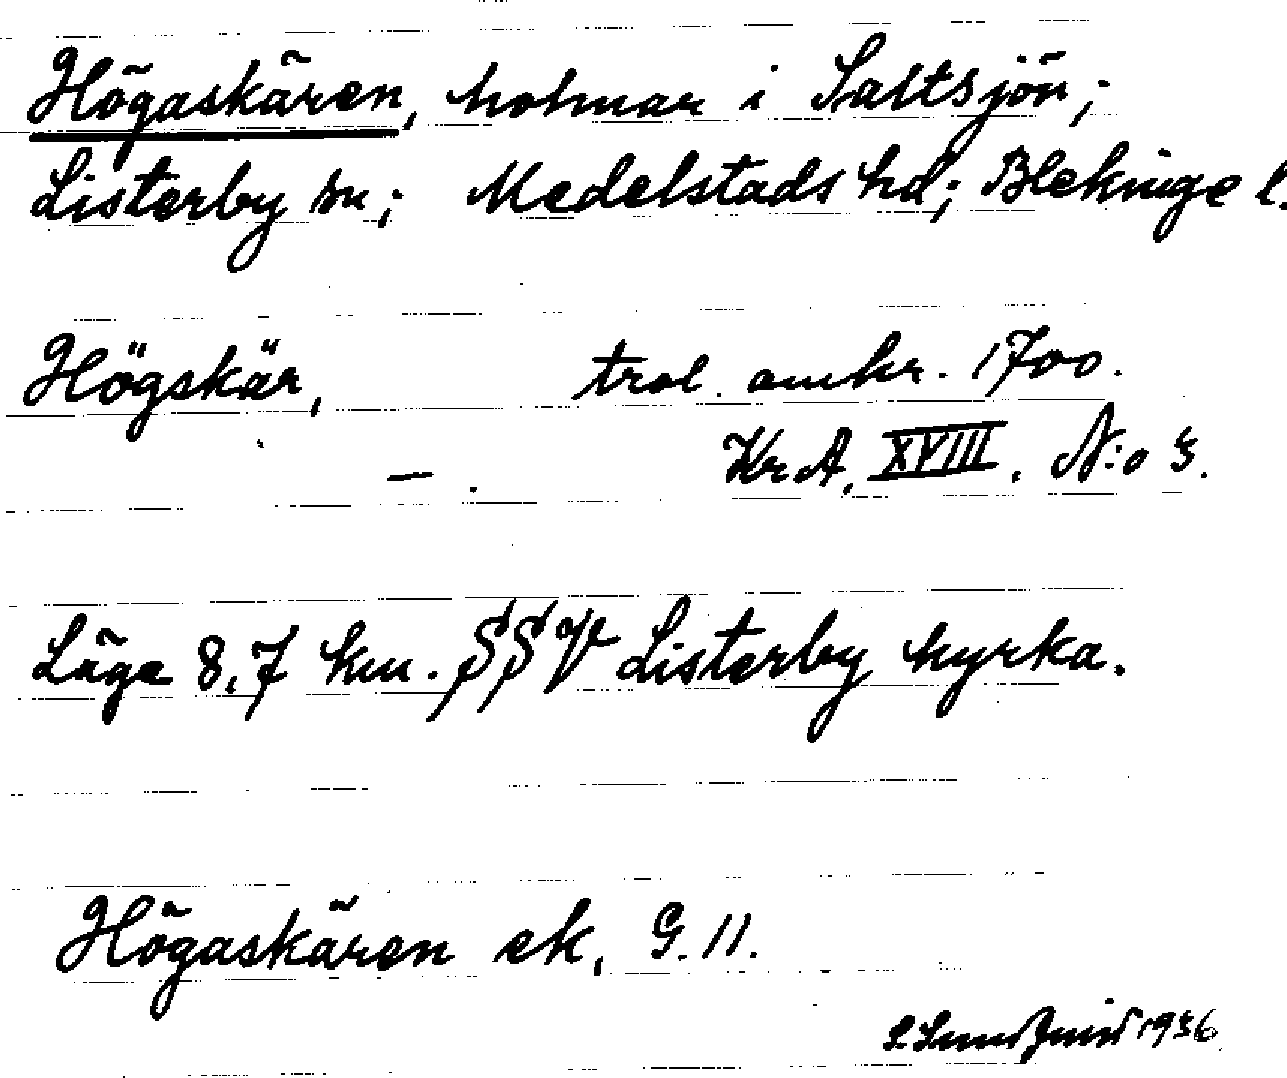 Högaskären, holmar i Saltsjön;
Listerby sn; Medelstads hd; Blekinge l.
Högskär, trol. omkr. 1700.
— . KrA, XVIII. N:o 3.
Läge 8,7 km. SSV Listerby kyrka.
Högaskären ek, G. 11.
1936